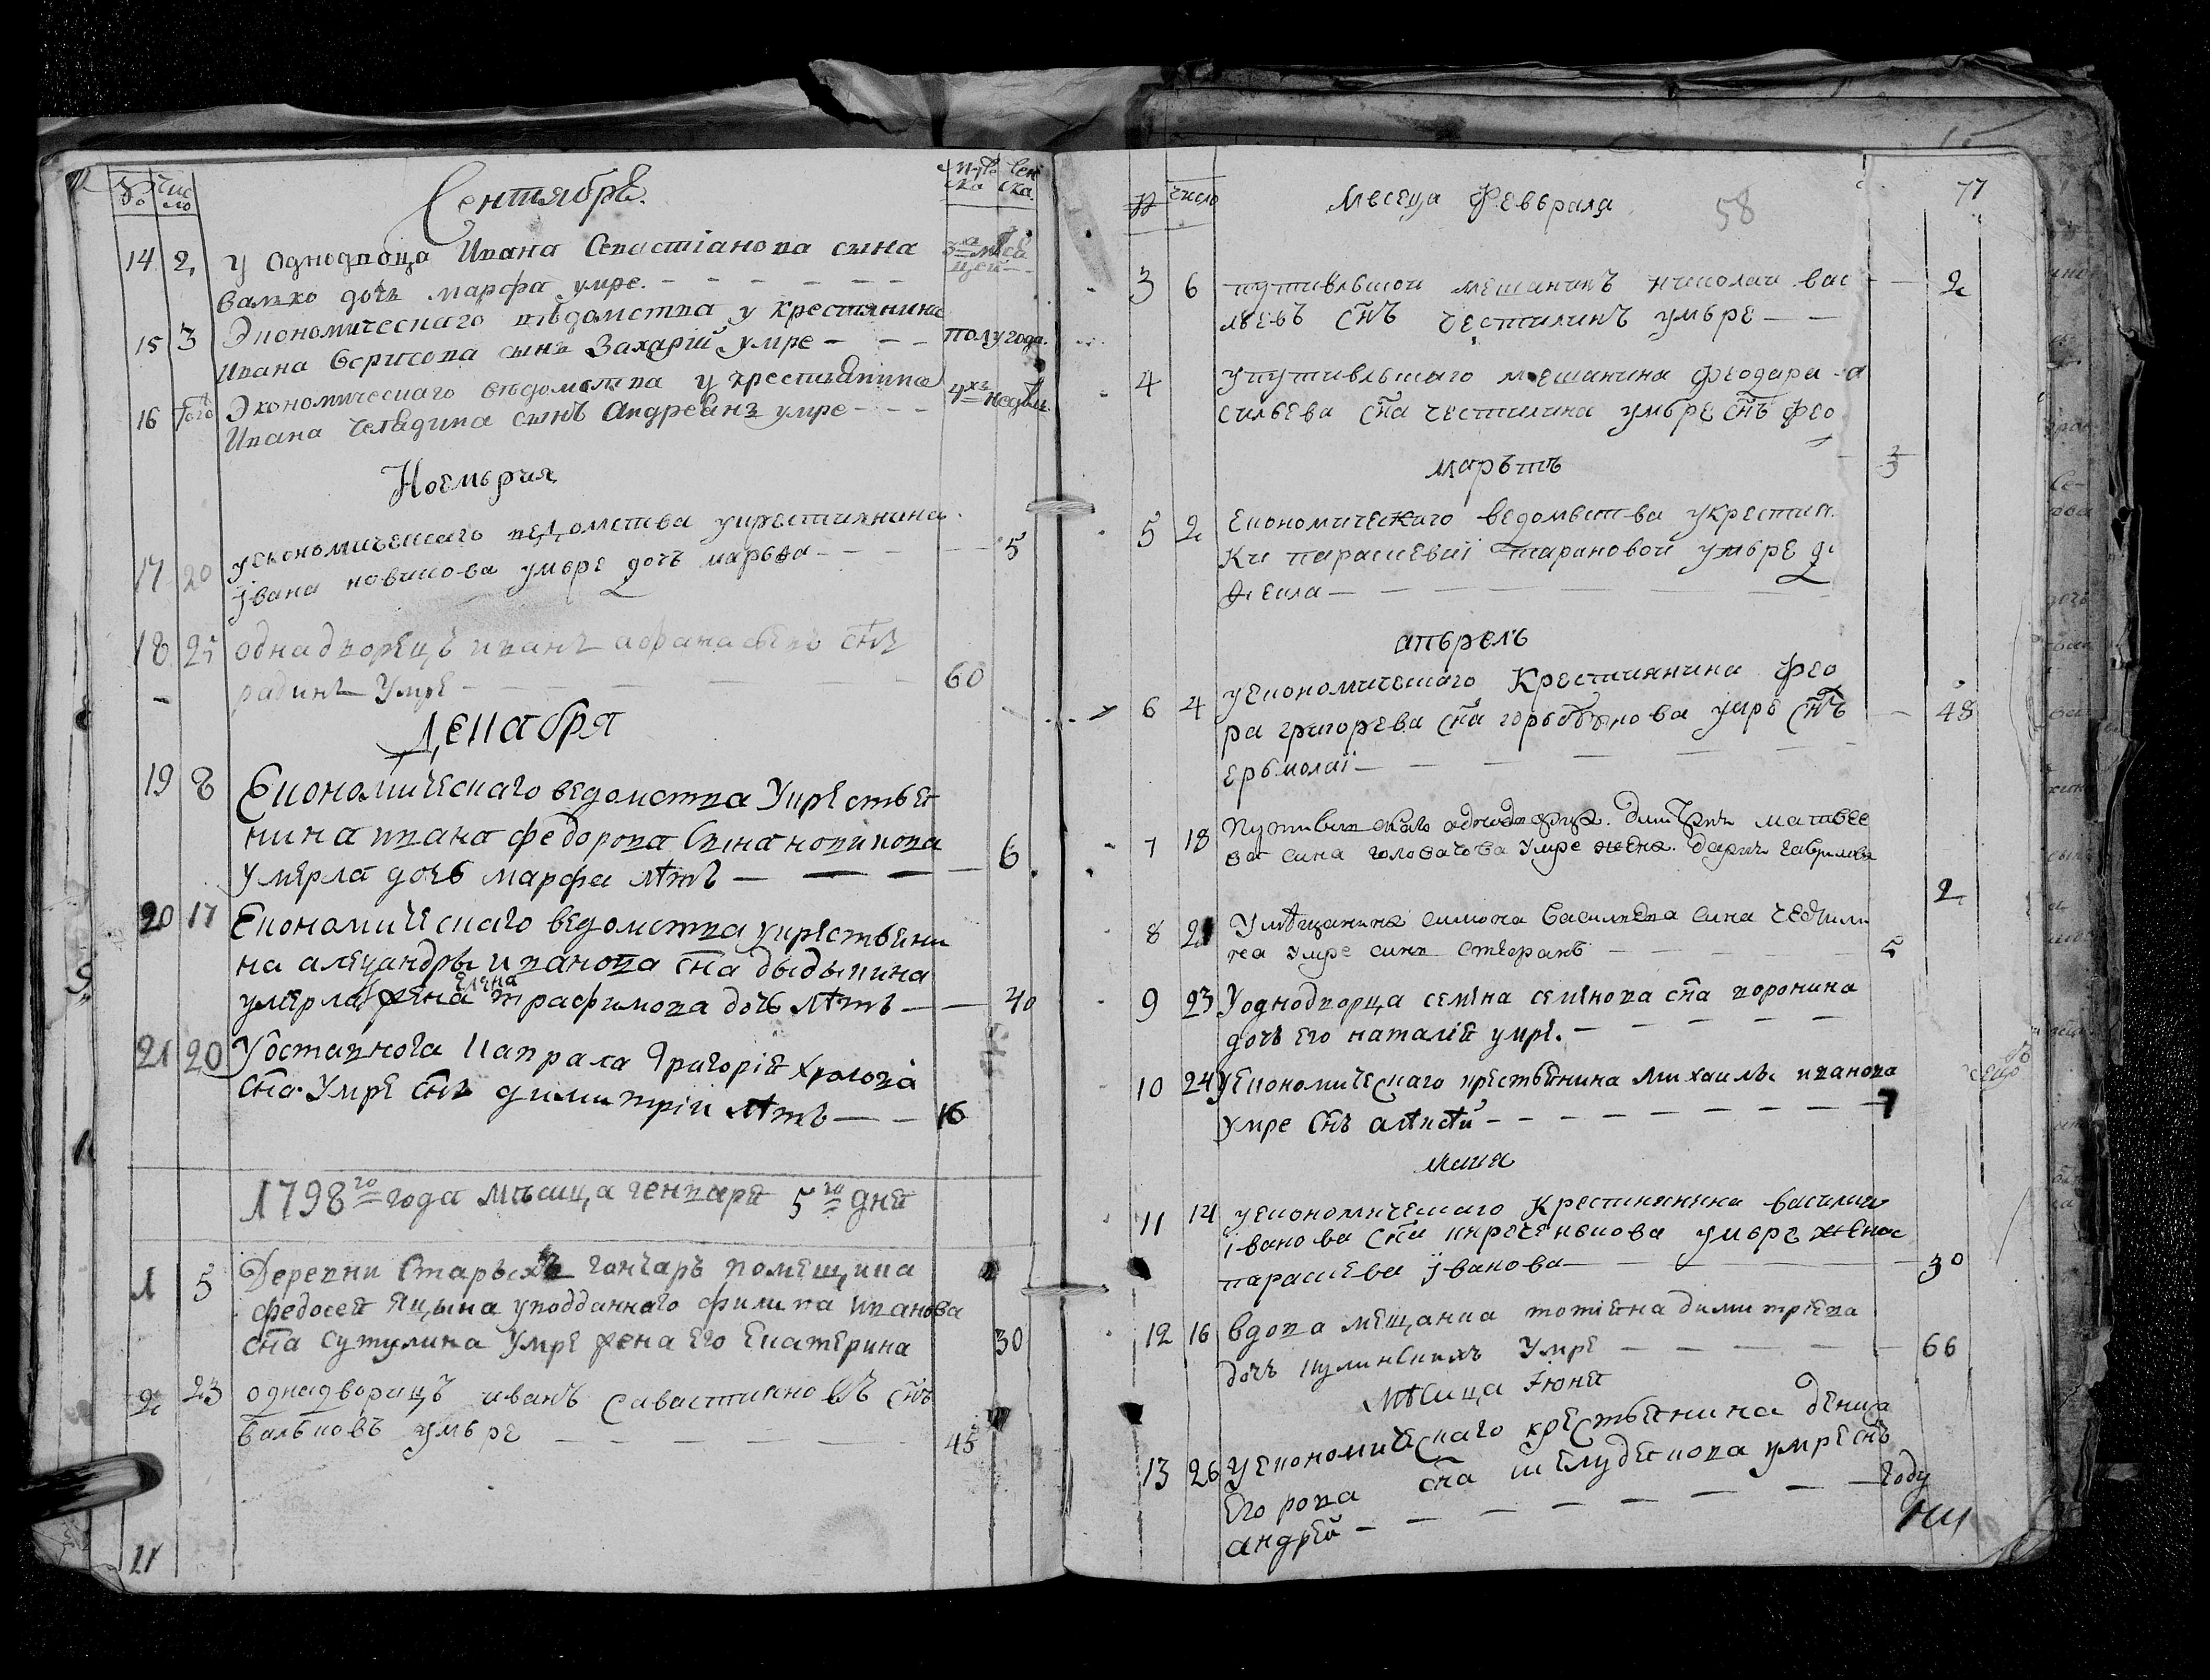 № Число
Сентябрѣ.
14 2 У Однодворца Ивана Севастіанова сына 3х меся
валко дочь марфа умре. цей
15 3 Экономическаго вѣдомства у крестянина
Ивана Борисова сынъ Захарій умре полугода.
16 того Экономическаго вѣдомства у крестьянина 4хъ недѣль
Ивана Челядина сынъ Андреанъ умре
Ноемврия
17 20 уекономическаго ведомства укрестиянина
івана новикова умьре дочъ марьфа 5
18 25 однадворецъ иванъ афанасьевъ снъ
радинъ Умре 60
Декабря
19 8 Економическаго ведомства Укрестьея
нина ивана федорова Сына новикова
умерла дочь марфа лѣтъ 6
20 17 Економическаго ведомства укрестьяни
на алеѯандры иванова сна дыдыкина
Елена
умерла жена трафимова дочь лѣтъ 40
21 20 Уоставнога Капрала Григорія хролова
сна Умре снъ димитріи лѣтъ 16
1798го года мѣсица генваря 5го дня
1 5 Деревни Старыхъ гончаръ помещика
федосея Яцына уподданнаго филипа Иванова
сна сутулина Умре жена Его Екатерина 30
2 23 однадворицъ иванъ Савастияновъ снъ
вальковъ умьре 45
21
№ число Месеца Февьраля 58 77
3 6 путивльшои мешанинъ николаи вас 2
льевъ снъ честилинъ умьре
4 упутивльшаго мешанина феодара
сильева сна честилина умьре снъ фео
3
марьтъ
5 2 Економическаго ведомьства укрестия
Ки парасиевиї тарановои умьре
фекла
апьрель
6 4 уекономическаго Крестиянина Фео
ра григорева сна горьбунова умре снъ 48
ерьмолаї
7 18 Путивльскаго однодворца. Дмитрия матвее
ва сина головачова Умре жена. Дария гаврилова
2
8 21 Умѣщанина симона Василиева сина честили
на умре синъ Стефанъ 5
9 23 Уоднодворца семена семенова сна воронина
дочь Его наталія умре.
10 24 уЕкономическаго крестьянина михаилы иванова
умре снъ алеѯѣй 7
маия
11 14 уекономическаго Крестиянина василия
іванова сна киреченькова умьре жена
парасиева їванова 30
12 16 вдова мещанка тотіяна димитріева
дочъ кулинскихъ Умре 66
мѣсица Іюня
13 26 уЕкономическаго крестьянина дениса
Егорова сна шелудякова умре снъ
андрей году